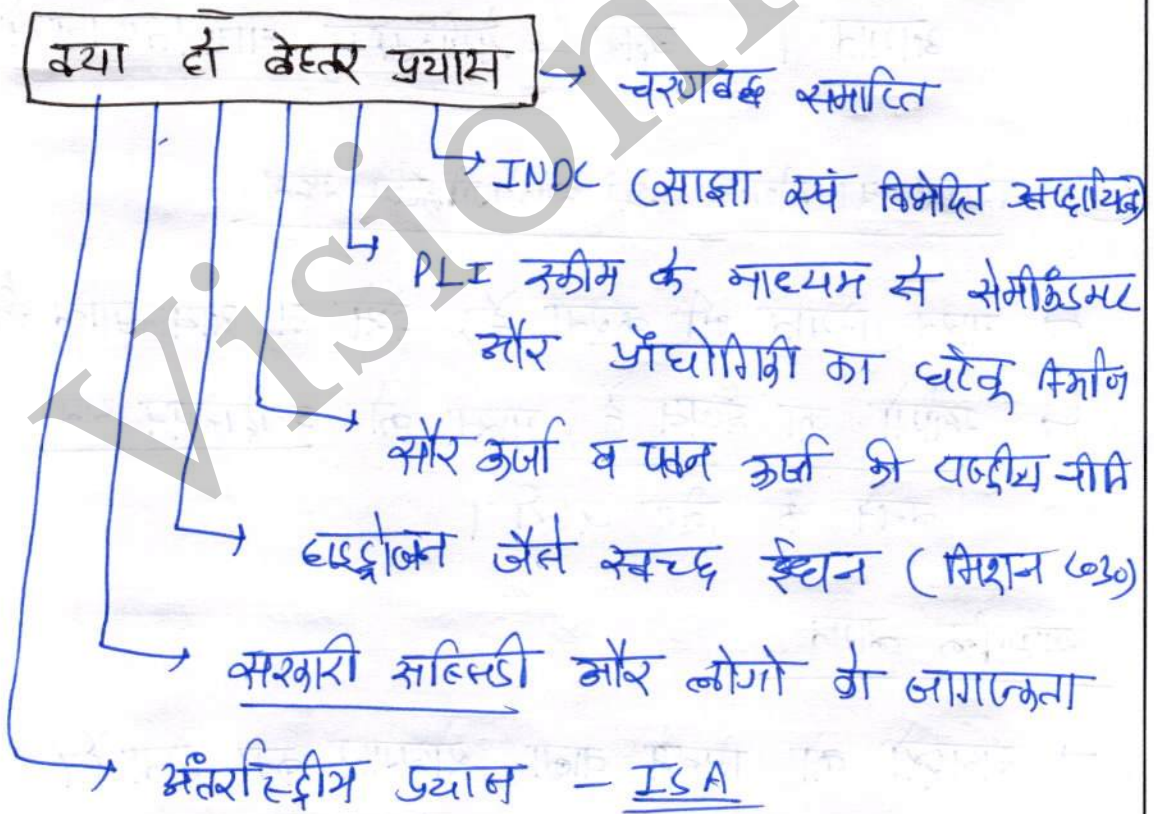 क्या हो बेहतर प्रयास → चरणबद्ध समाप्ति
INDC (साझा एवं विभेदित
PLI स्कीम के माध्यम से सेमीकंडक्टर
और प्रौद्योगिकी का घरेलू निर्माण
सौर ऊर्जा व पवन ऊर्जा की राष्ट्रीय नीति
हाइड्रोजन जैसे स्वच्छ ईंधन (मिशन
सरकारी सब्सिडी और लोगो को जागरूकता
अंतर्राष्ट्रीय प्रयास - ISA
Vision